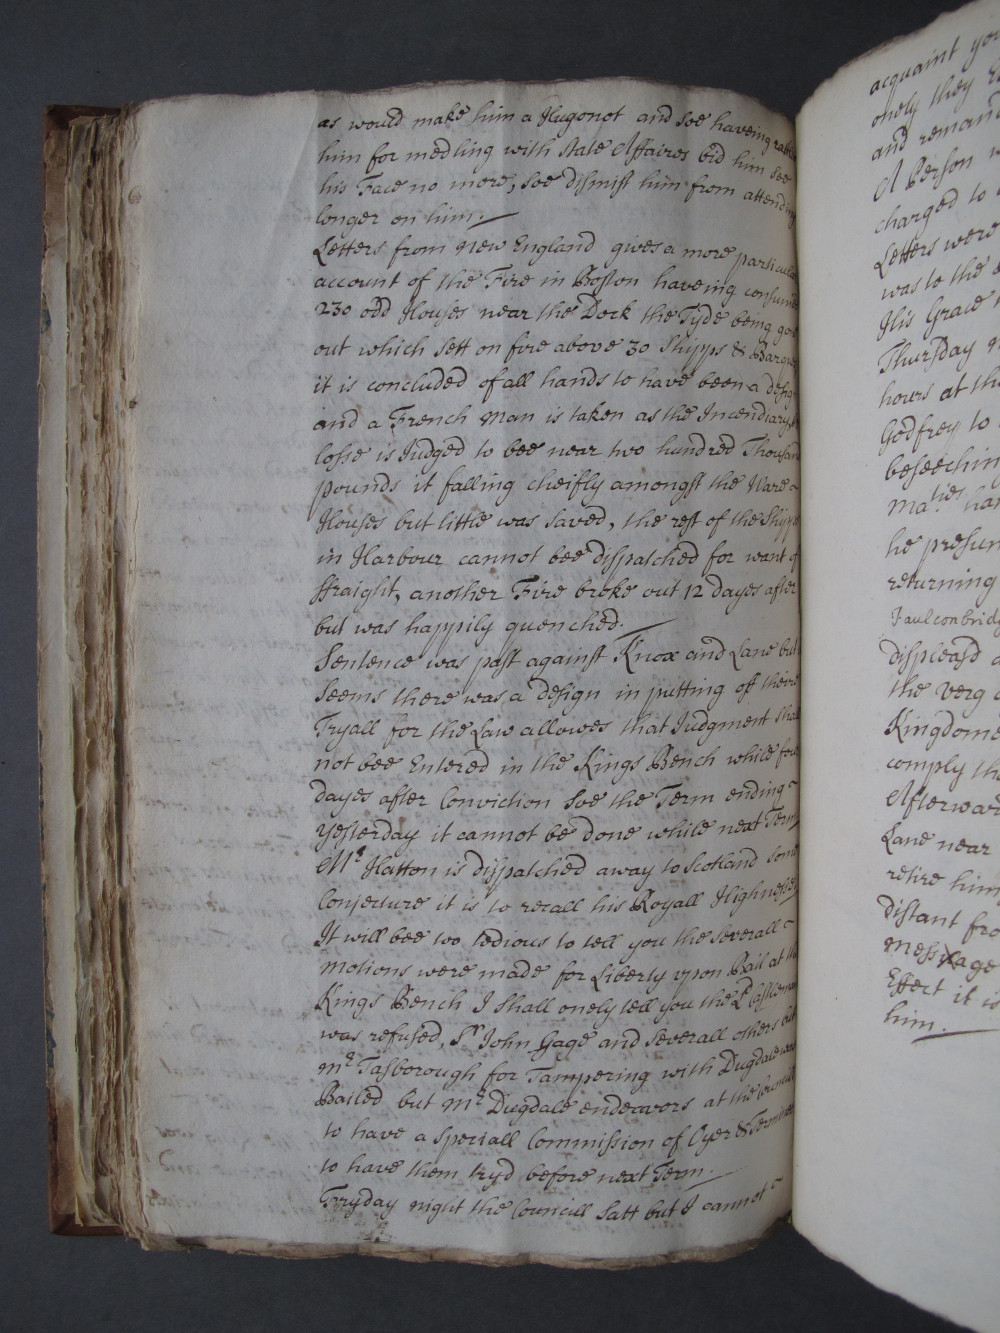 as would make him a Hugonot and soe haveing
him for medling with State Affaires bid him see
his Face no more, soe dismist him from attending
longer on him.
Letters from New England gives a more particular
account of the Fire in Boston haveing consumed
230 odd Houses near the Dock the Tyde being gon
out which sett on fire above 30 Shipps & Barques
it is concluded of all hands to have been a design
and a French Man is taken as the Incendiary
losse is Judged to bee near two hundred Thousand
pounds it falling cheifly amongst the Ware
Houses but little was saved, the rest of the Shipps
in Harbour cannot bee dispatched for want of
ffraight, another Fire broke out 12 dayes after
but was happily quenched.
Sentence was past against Knox and Lane but
seems there was a design in putting off theire
Tryall for the Law allowes that Judgment shall
not bee Entered in the Kings Bench while four
dayes after Conviction soe the Term ending
yesterday it cannot be done while next Term
Mr Hatton is dispatched away to Scotland some
Conjecture it is to recall his Royall Highnesse
It will bee too tedious to tell you the severall
motions were made for Liberty upon Bail at the
Kings Bench I shall onely tell you the Ld Castlemain
was refused, Sr John Gage and severall others but
Mr Tasborough for Tampering with Dugdale was
Bailed but Mr Dugdale endeavors at the Council
to have a speciall Commission of Oyer & Terminer
to have them tryd before next Term.
Fryday night the Councill satt but I cannot
acquaint you
onely they
and remand
A Person
charged to
Letters were
was to the
His Grace
Thursday
hours at the
Godfrey to
beseeching
Maties
he presum
returning
Faulconbridg
displeasd
the verg
Kingdome
comply the
Afterward
Lane near
retire him
distant fro
message
Effect it is
him.